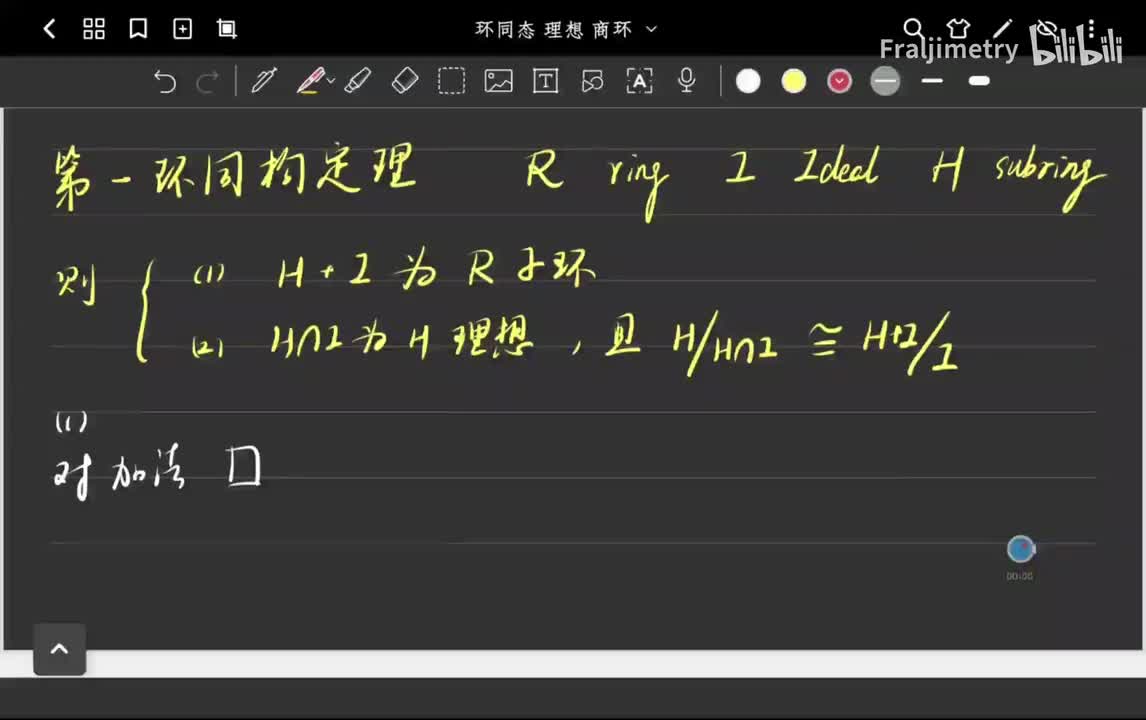 环同态 理想 商环
Fraljimetry bilibili
T A
第一环同构定理 R ring I Ideal H subring
则 (1) H+I 为 R 子环
(2) H∩I 为 H 理想，且 H/H∩I ≅ H+I/I
(1)
对加法 口
00:00